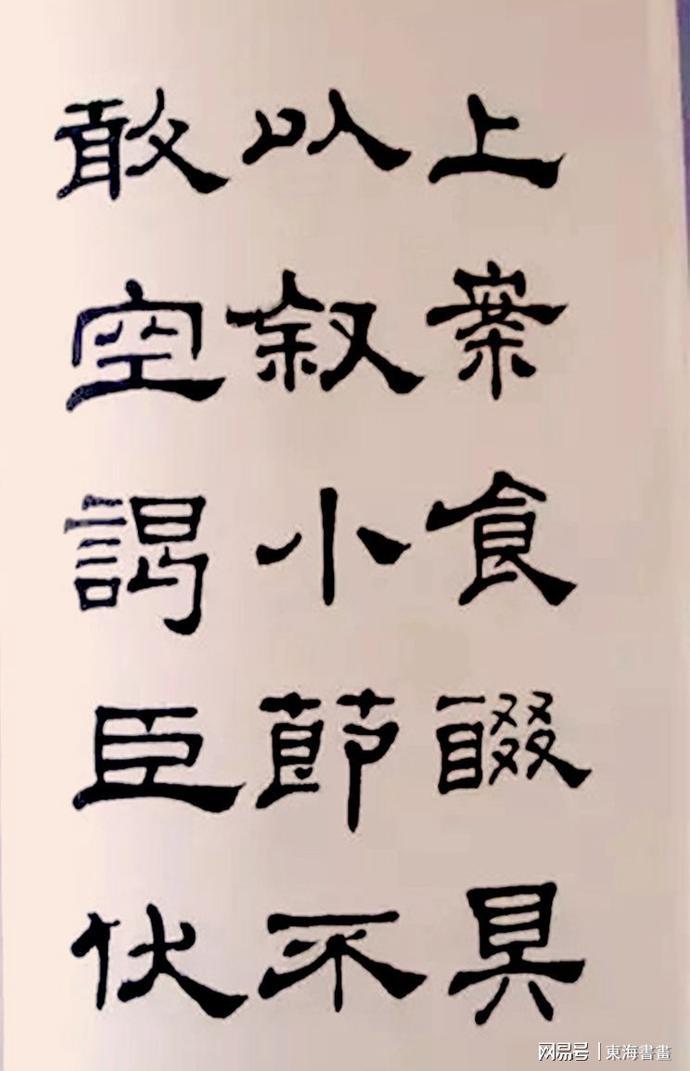 上案食醊具
以叙小節不
敢空謁臣伏
网易号 | 東海書畫